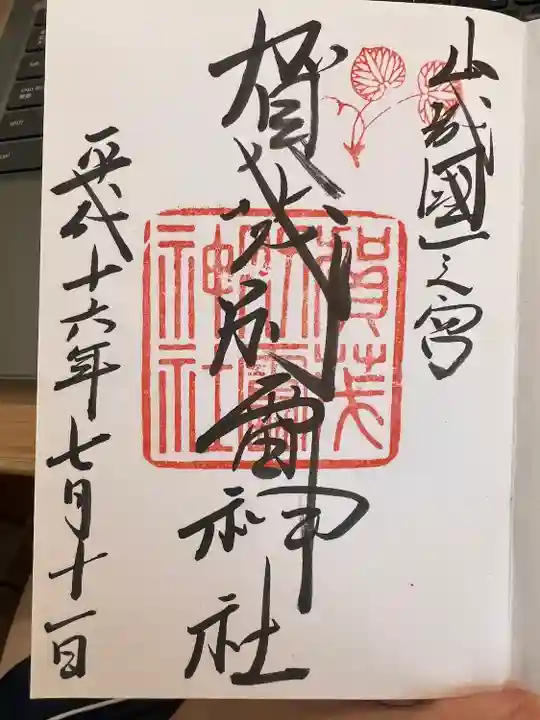 山城國一之宮
賀茂別雷神社
賀茂別雷神社
平成十六年七月十一日